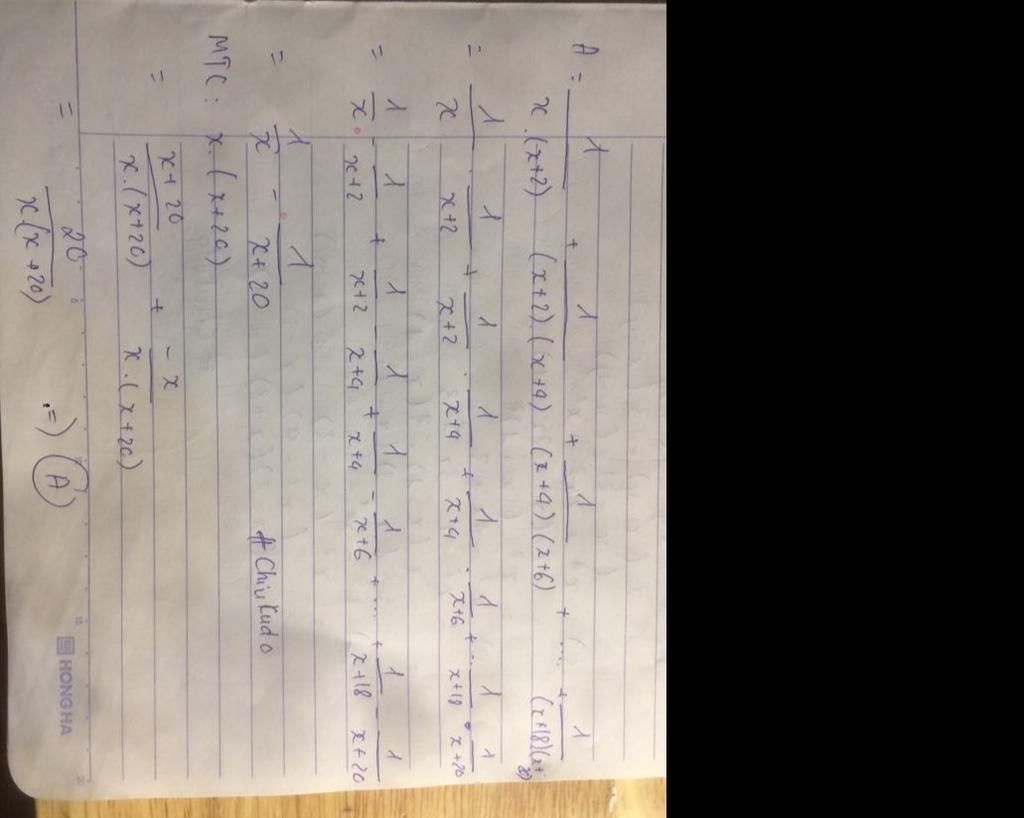 A = 1/(x.(x+2)) + 1/((x+2).(x+4)) + 1/((x+4)(x+6)) + ... + 1/((x+18)(x+20))
= 1/x . 1/(x+2) + 1/(x+2) . 1/(x+4) + 1/(x+4) . 1/(x+6) + ... 1/(x+18) . 1/(x+20)
= 1/x - 1/(x+2) + 1/(x+2) - 1/(x+4) + 1/(x+4) - 1/(x+6) + ... + 1/(x+18) - 1/(x+20)
= 1/x - 1/(x+20)
#Chiikudo
MTC: x.(x+20)
= (x+20)/(x.(x+20)) + (-x)/(x.(x+20))
= 20/(x.(x+20)) => A
HONG HA